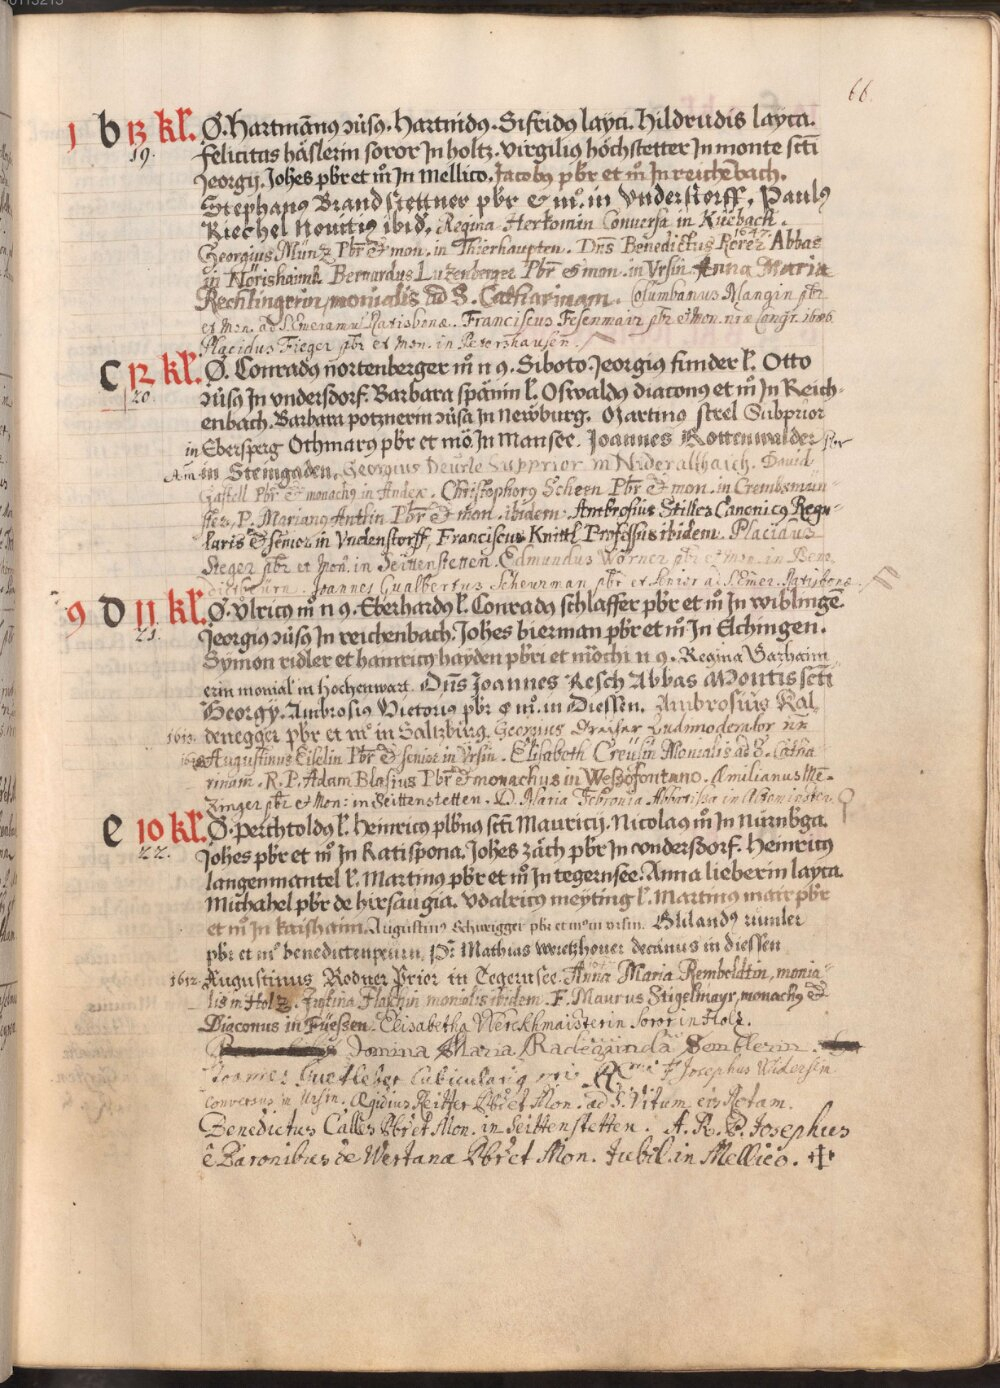 66.
1 b 13 kl. Ø. Hartmān9 ɔũs9. Hartnid9. Sifrid9 layci. Hildrudis layca.
19. felicitas häslerin soror Jn holtz. virgili9 höchstetter Jn monte sc̄ti
Jeorgij. Joh̄es pb̄r et m̊ Jn Mellico. Jacob9 pb̄r et m̊ Jn reichēbach.
Stephan9 Brandstettner pb̄r & m̊. in Vnderstorff. Paul9
Riechel Noviti9 ibid. Regina Herkomin Conversa in Küebach.
1647.
Georgius Münz Pb̄r & mon. in Thierhaupten. Dn̄s Benedictus Abbas
in Bernardus Luzenberger Pb̄r & mon. in Vrsin. Anna Maria
Rechlingerin monialis ad S. Catharinam. Columbanus Mangin pb̄r
et Mon. ad S. Emeramū Ratisbonæ. Franciscus Fesenmair pb̄r et Mon. n̄ræ Congr. 1686.
Placidus Fieger pb̄r et Mon. in Petershausen.
C 12 kl. Ø. Conrad9 nortenberger m̊ n 9. Siboto. Jeorgi9 funder l. Otto
20. ɔũs9 Jn vndersdorf. Barbara spänin l. Oswald9 diacon9 et m̊ Jn Reich-
enbach. Barbara potznerin ɔũsa Jn Newburg. Martin9 strel Subprior
in Ebersperg Othmar9 pb̄r et mō Jn Mansee. Joannes Rottenwalder
in Steingaden. Georgius Deurle Supprior in Nideralthaich. David
Gastell Pb̄r & monach9 in Andex. Christophor9 Schern Pb̄r & mon. in Crembsmün-
ster, P. Marian9 Pb̄r & mon. ibidem. Ambrosius Stiller Canonic9 Regu-
laris & senior in Vndenstorff, Franciscus Knittl Professus ibidem. Placidus
Steger pb̄r et Mon. in Seittenstetten. Edmundus Wörner pb̄r et Mon. in Bene
dictbeurn. Joannes Gualbertus Scheurman pb̄r et Senior ad S. Emer. Ratisbonæ.
9 D 11 kl. Ø. Vlric9 m̊ n 9. Eberhard9 l. Conrad9 schlaffer pb̄r et m̊ Jn wiblingē.
21. Jeorgi9 ɔũs9 Jn reichenbach. Joh̄es bierman pb̄r et m̊ Jn Elchingen.
Symon ridler et hainric9 hayden pb̄ri et mōchi n 9. Regina
erin monial in Hochenwart. Dn̄s Joannes Resch Abbas Montis sc̄ti
Georgy. Ambrosi9 Victori9 pb̄r & m̊. in Diessen. Ambrosius Kal
1613. denegger pb̄r et m̊ in Saltzburg. Georgius Ludimoderator
Augustinus Eiselin Pb̄r & senior in Vrsin. Elisabeth Creusin Monialis ad S. Catha
rinam. R. P. Adam Blasius Pb̄r & monachus in Weßofontano. Æmilianus Me-
zinger pb̄r et Mon: in Seittenstetten. D. Maria Febronia Abbatissa in Altominster.
e 10 kl. Ø. perchtold9 l. Heinric9 plbn9 sc̄ti Mauricij. Nicola9 m̊ Jn Nürnbḡa.
22. Joh̄es pb̄r et m̊ Jn Ratispona. Joh̄es zäch pb̄r Jn vndersdorf. Heinric9
langenmantel l. Martin9 pb̄r et m̊ Jn tegernsee. Anna lieberin layca
Michahel pb̄r de hirsaugia. Vdalric9 meyting l. Martin9 mair pb̄r
et m̊ Jn kaishaim. Augustin9 Schwigger pb̄r et m̊ in vrsin. rumler
pb̄r et m̊ benedictenpeurn. Mathias weretzhouer decanus in diessen
1612. Augustinus Rodner Prior in Tegernsee. Anna Maria Remboldtin, monia-
lis in Holz. Justina monialis ibidem. F. Maurus Stigelmayr, monach9 &
Diaconus in Füessen. Elisabetha Werckhmaisterin Soror in Holz.
Domina Maria Radegunda
Joannes Cubiculari9 F. Josephus Widerstin
Conversus in Ursin. Ægidius Reitter Pb̄r et Mon. ad S. Vitum cis Rotam.
Benedictus Calles Pb̄r et Mon. in Seittenstetten. A. R. P. Josephus
è Baronibus de Wertana Pb̄r et Mon. Jubil. in Mellico. ✠